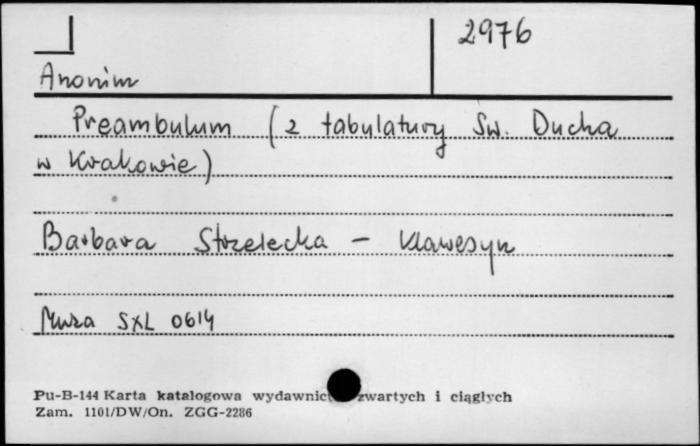 2976
Anonim
Preambulum (z tabulatury Św. Ducha
w Krakowie)
Barbara Strzelecka – klawesyn
Muza SXL 0614
Pu-B-144 Karta katalogowa wydawnic zwartych i ciągłych
Zam. 1101/DW/On. ZGG-2286